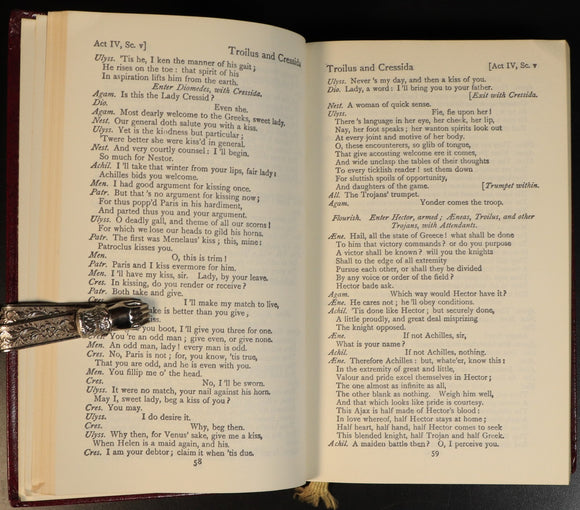 Act IV, Sc. v]
Troilus and Cressida
Ulyss. 'Tis he, I ken the manner of his gait;
He rises on the toe: that spirit of his
In aspiration lifts him from the earth.
Enter Diomedes, with Cressida.
Agam. Is this the Lady Cressid?
Dio. Even she.
Agam. Most dearly welcome to the Greeks, sweet lady.
Nest. Our general doth salute you with a kiss.
Ulyss. Yet is the kindness but particular;
'Twere better she were kiss'd in general.
Nest. And very courtly counsel: I'll begin.
So much for Nestor.
Achil. I'll take that winter from your lips, fair lady:
Achilles bids you welcome.
Men. I had good argument for kissing once.
Patr. But that's no argument for kissing now;
For thus popp'd Paris in his hardiment,
And parted thus you and your argument.
Ulyss. O deadly gall, and theme of all our scorns!
For which we lose our heads to gild his horns.
Patr. The first was Menelaus' kiss; this, mine:
Patroclus kisses you.
Men. O, this is trim!
Patr. Paris and I kiss evermore for him.
Men. I'll have my kiss, sir. Lady, by your leave.
Cres. In kissing, do you render or receive?
Patr. Both take and give.
Cres. I'll make my match to live,
take is better than you give;
kiss.
boot, I'll give you three for one.
You're an odd man; give even, or give none.
Men. An odd man, lady! every man is odd.
Cres. No, Paris is not; for, you know, 'tis true,
That you are odd, and he is even with you.
Men. You fillip me o' the head.
Cres. No, I'll be sworn.
Ulyss. It were no match, your nail against his horn.
May I, sweet lady, beg a kiss of you?
Cres. You may.
Ulyss. I do desire it.
Cres. Why, beg then.
Ulyss. Why then, for Venus' sake, give me a kiss,
When Helen is a maid again, and his.
Cres. I am your debtor; claim it when 'tis due.
58
Troilus and Cressida
[Act IV, Sc. v
Ulyss. Never's my day, and then a kiss of you.
Dio. Lady, a word: I'll bring you to your father.
[Exit with Cressida.
Nest. A woman of quick sense.
Ulyss. Fie, fie upon her!
There's language in her eye, her cheek, her lip,
Nay, her foot speaks; her wanton spirits look out
At every joint and motive of her body.
O, these encounterers, so glib of tongue,
That give accosting welcome ere it comes,
And wide unclasp the tables of their thoughts
To every ticklish reader! set them down
For sluttish spoils of opportunity,
And daughters of the game. [Trumpet within.
All. The Trojans' trumpet.
Agam. Yonder comes the troop.
Flourish. Enter Hector, armed; Æneas, Troilus, and other
Trojans, with Attendants.
Æne. Hail, all the state of Greece! what shall be done
To him that victory commands? or do you purpose
A victor shall be known? will you the knights
Shall to the edge of all extremity
Pursue each other, or shall they be divided
By any voice or order of the field?
Hector bade ask.
Agam. Which way would Hector have it?
Æne. He cares not; he'll obey conditions.
Achil. 'Tis done like Hector; but securely done,
A little proudly, and great deal misprizing
The knight opposed.
Æne. If not Achilles, sir,
What is your name?
Achil. If not Achilles, nothing.
Æne. Therefore Achilles: but, whate'er, know this:
In the extremity of great and little,
Valour and pride excel themselves in Hector;
The one almost as infinite as all,
The other blank as nothing. Weigh him well,
And that which looks like pride is courtesy.
This Ajax is half made of Hector's blood:
In love whereof, half Hector stays at home;
Half heart, half hand, half Hector comes to seek
This blended knight, half Trojan and half Greek.
Achil. A maiden battle then? O, I perceive you.
59